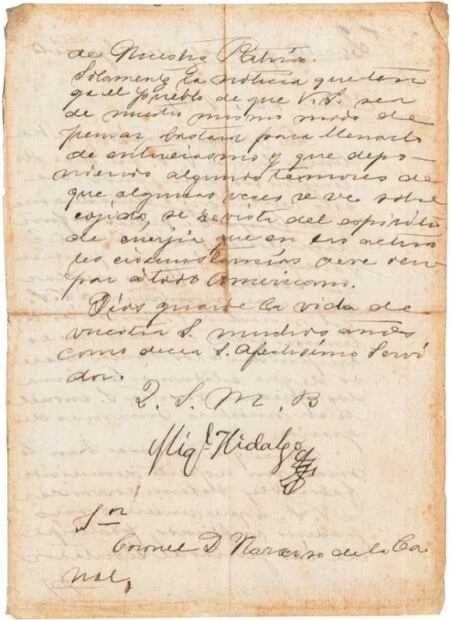 de Nuestra Patria.
Solamente la noticia que ten
ga el pueblo de que V.S. sea
de nuestro mismo modo de
pensar, bastará para llenarlo
de entuciasmo y que depo-
niendo algunos temores de
que algunas veces se ve sobre
cojido, se revista del espíritu
de energía que en las actua
les circunstancias deve ocu
par á todo Americano.
Dios guarde la vida de
vuestra S. muchos años
como decea S. afectisimo servi
dor.
Q. S. M. B
Migl. Hidalgo
Sor
Coronel D Narciso de la Ca
nal,